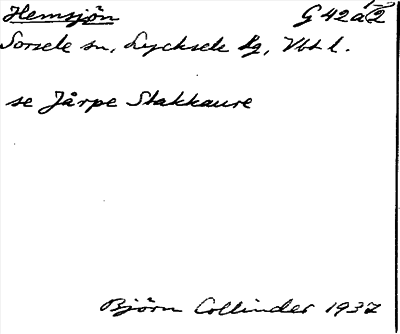 Hemsjön G 42 a 2
Sorsele sn, Lycksele lg, Vbt l.
se Jårpe Stakkaure
Björn Collinder 1937